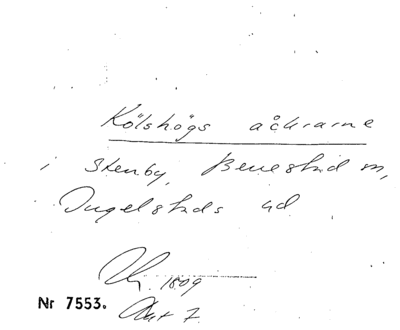 Kölshögs åckrarne
i Stenby, Benestad sn,
Ingelstads hd
1809
Akt 7
Nr 7553.